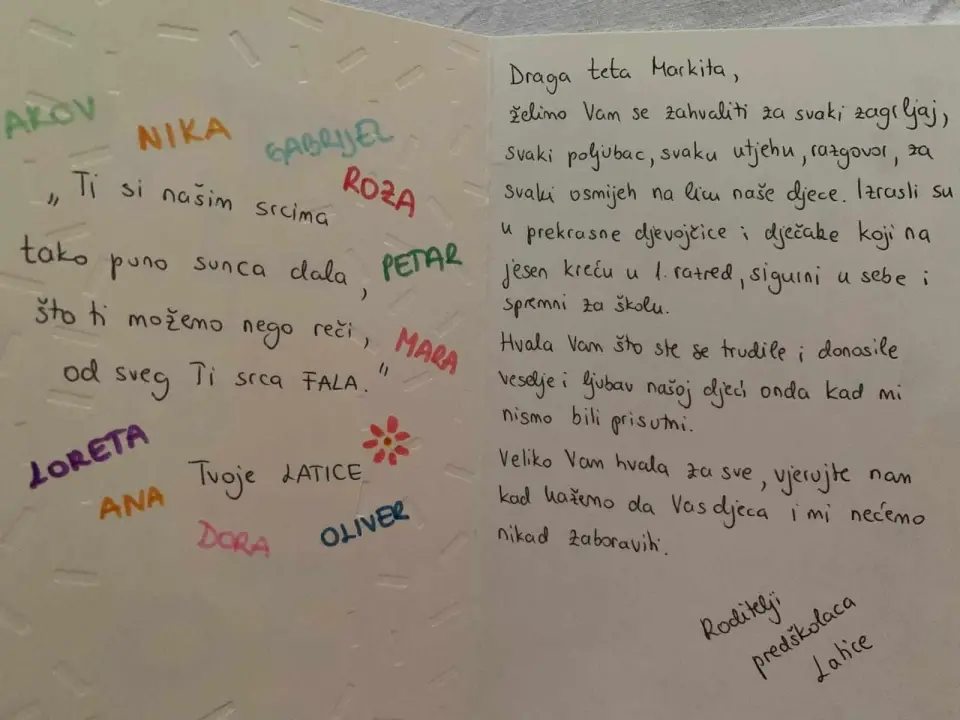 AKOV
NIKA
GABRIJEL
„Ti si našim srcima
ROZA
tako puno sunca dala,
PETAR
što ti možemo nego reči,
MARA
od sveg Ti srca FALA."
LORETA
Tvoje LATICE
ANA
DORA
OLIVER
Draga teta Markita,
želimo Vam se zahvaliti za svaki zagrljaj,
svaki poljubac, svaku utjehu, razgovor, za
svaki osmijeh na licu naše djece. Izrasli su
u prekrasne djevojčice i dječake koji na
jesen kreću u 1. razred, sigurni u sebe i
spremni za školu.
Hvala Vam što ste se trudile i donosile
veselje i ljubav našoj djeci onda kad mi
nismo bili prisutni.
Veliko Vam hvala za sve, vjerujte nam
kad kažemo da Vas djeca i mi nećemo
nikad zaboraviti.
Roditelji
predškolaca
Latice